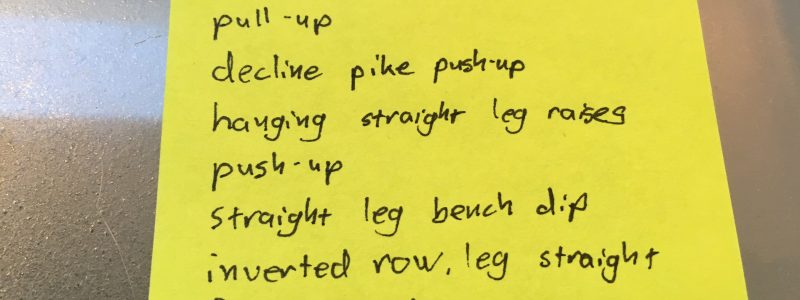 pull-up
decline pike push-up
hanging straight leg raises
push-up
straight leg bench dip
inverted row, leg straight